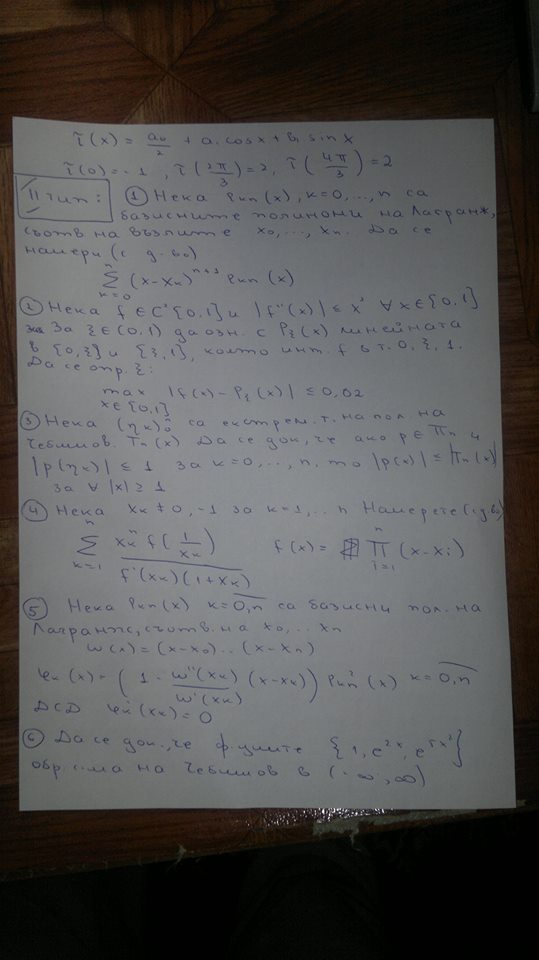 τ(x) = a₀/2 + a₁cosx + b₁ sinx
τ(0) = -1, τ(2π/3) = 2, τ(4π/3) = 2
II тип: ① Нека ℓkn(x), k=0,...,n са
базисните полиноми на Лагранж,
съотв на възлите x₀,..., xn. Да се
намери (с д-во)
n Σ k=0 (x-xk)ⁿ⁺¹ ℓkn(x)
② Нека f ∈ C²[0,1] и |f''(x)| ≤ x² ∀x∈[0,1]
За ξ∈(0,1) да озн. с Pξ(x) линейната
в [0,ξ] и [ξ,1], която инт. f в т. 0, ξ, 1.
Да се опр. ξ:
max |f(x) - Pξ(x)| ≤ 0,02
x∈[0,1]
③ Нека (ηk)ⁿ₀ са екстрем. т. на пол. на
Чебишов Tn(x) Да се док, че ако p∈πn и
|p(ηk)| ≤ 1 за k=0,...,n, то |p(x)| ≤ |Tn(x)|
за ∀ |x| ≥ 1
④ Нека xk ≠ 0, -1 за k=1,.. n Намерете (с д-во)
n Σ k=1 xkⁿ f(1/xk) / f'(xk)(1+xk) f(x) = n Π i=1 (x-xi)
⑤ Нека ℓkn(x) k=0,n са базисни пол. на
Лагранж, съотв. на x₀,.. xn
ω(x) = (x-x₀)..(x-xn)
φk(x) = (1 - ω''(xk)/ω'(xk) (x-xk)) ℓkn²(x) k=0,n
ДСД φk'(xk) = 0
⑥ Да се док., че ф-циите {1, e²ˣ, e⁵ˣ²}
обр. с-ма на Чебишов в (-∞, ∞)